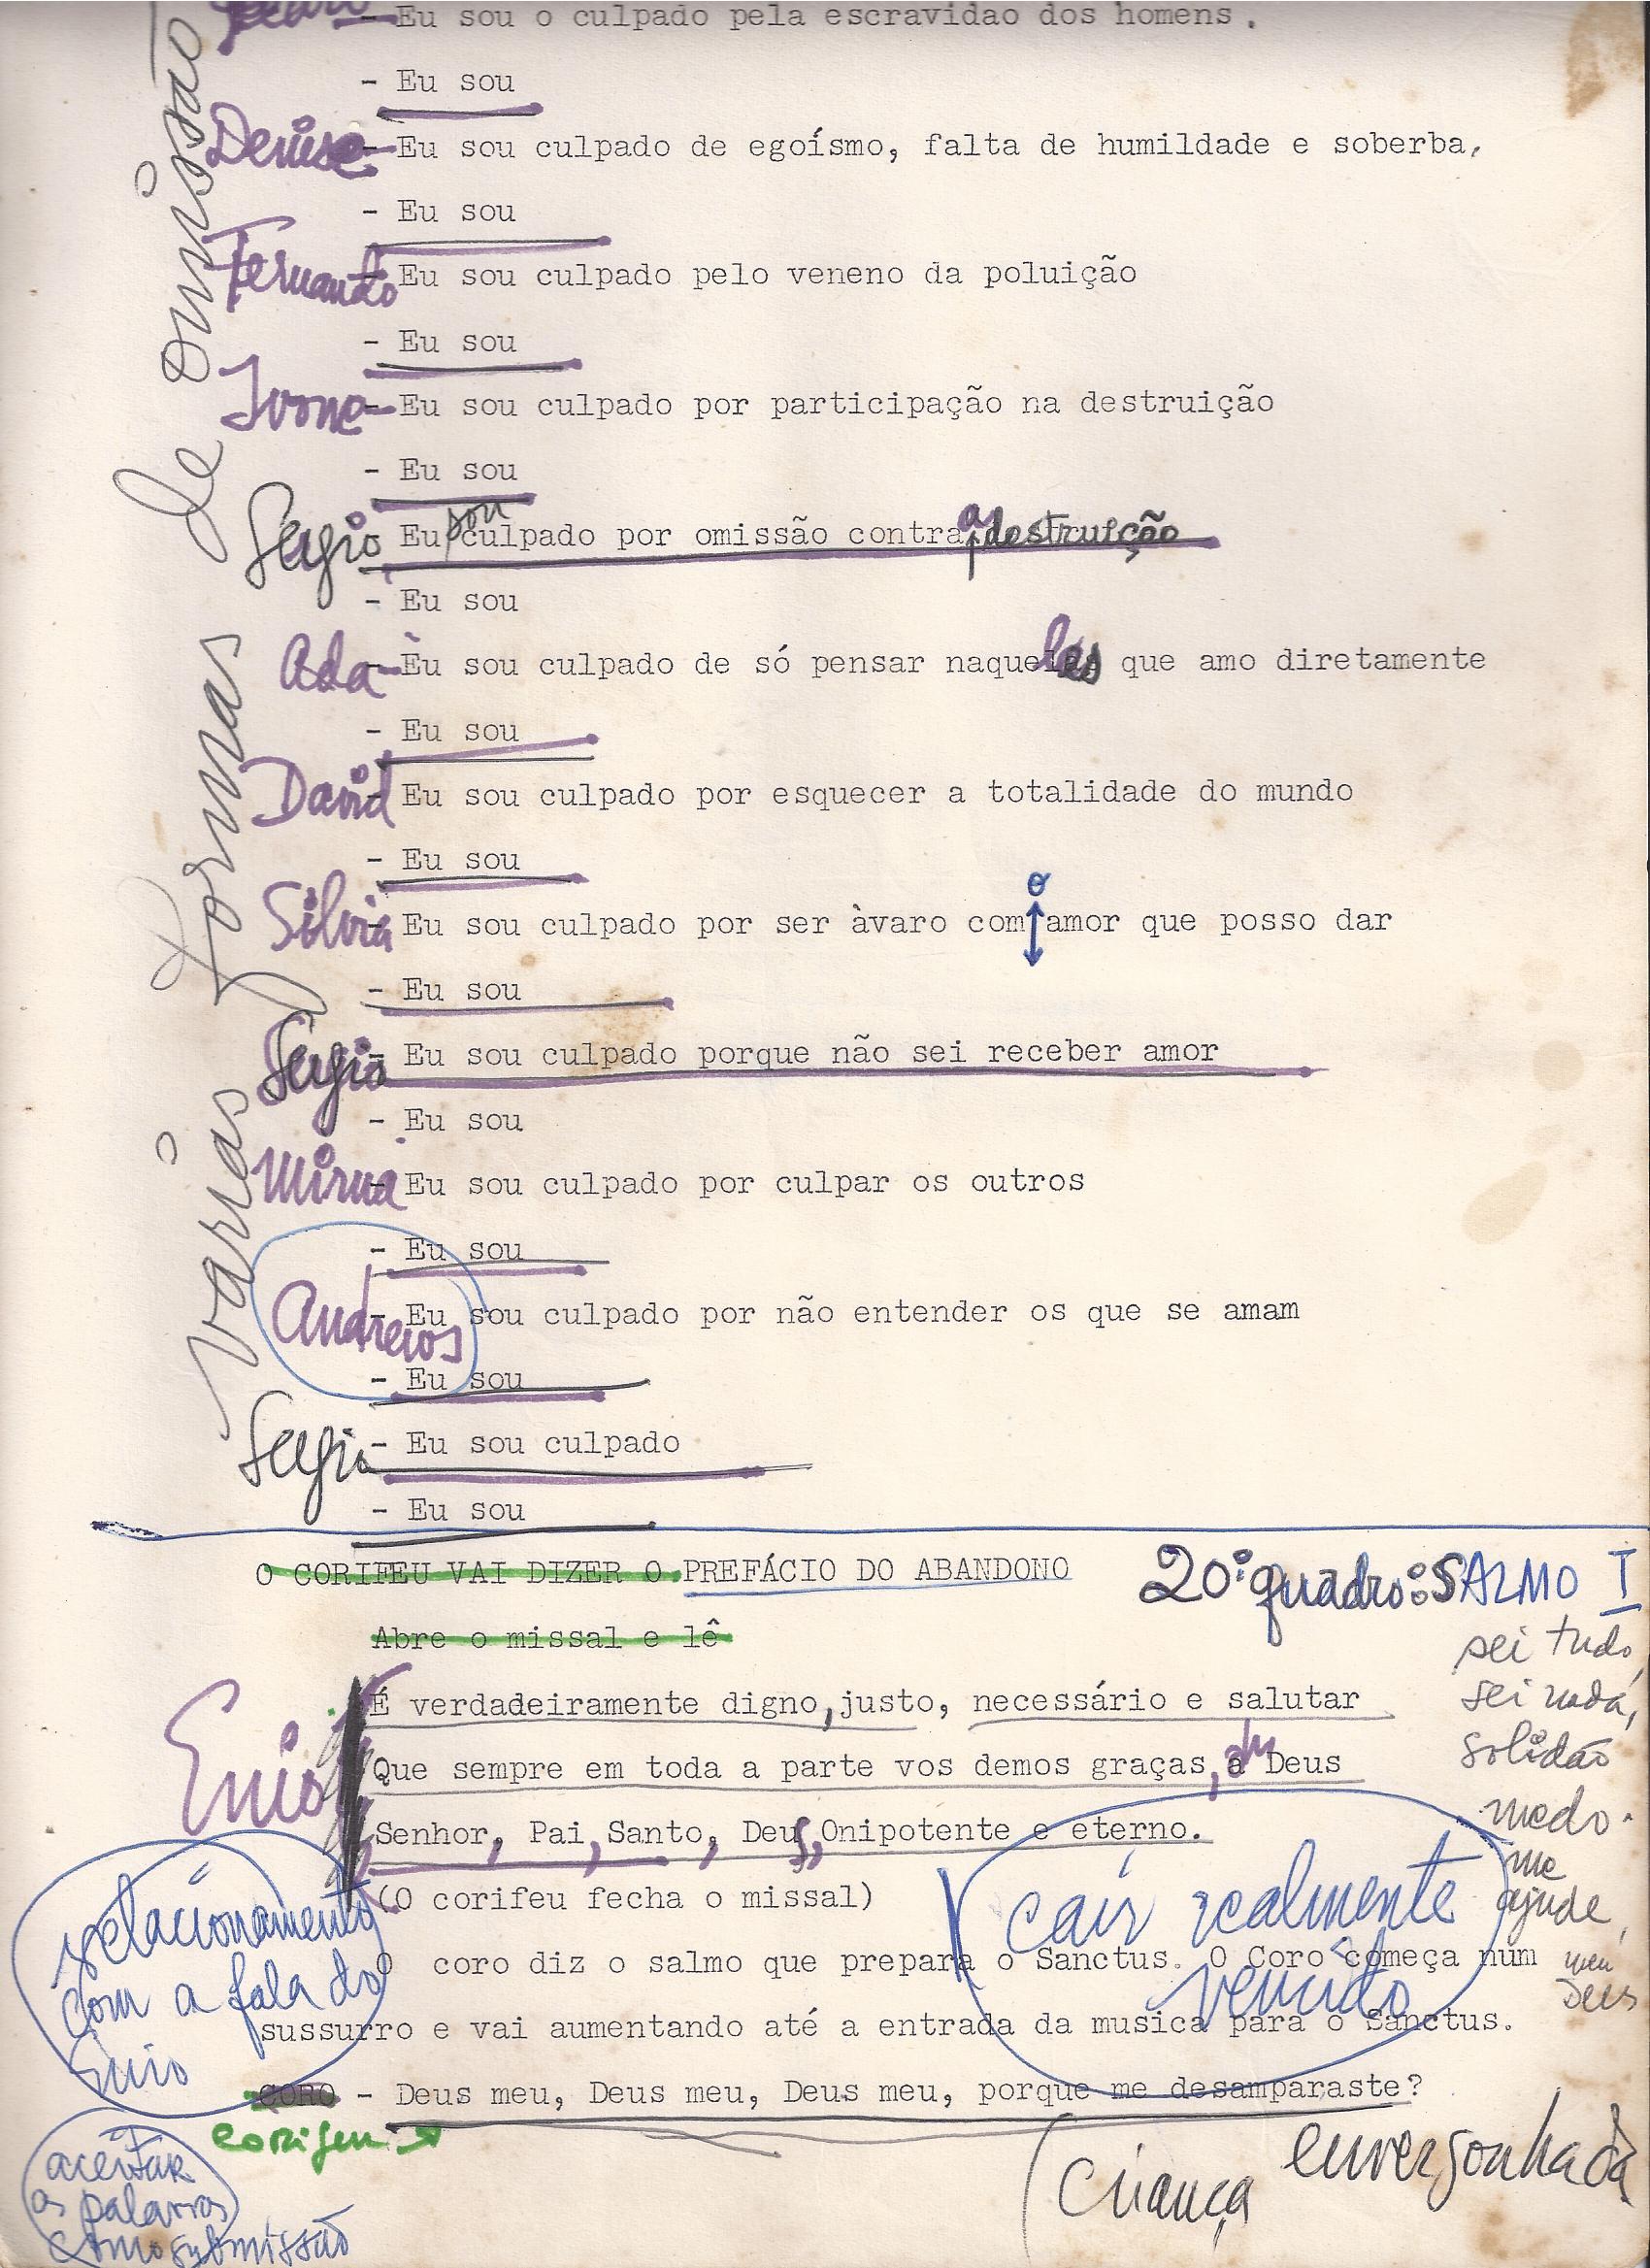 - Eu sou o culpado pela escravidao dos homens.
- Eu sou
Denise - Eu sou culpado de egoísmo, falta de humildade e soberba,
- Eu sou
Fernando Eu sou culpado pelo veneno da poluição
- Eu sou
Ivone - Eu sou culpado por participação na destruição
- Eu sou
Sergio Eu sou culpado por omissão contra a destruição
- Eu sou
Ada - Eu sou culpado de só pensar naqueles que amo diretamente
- Eu sou
David Eu sou culpado por esquecer a totalidade do mundo
- Eu sou
Silvia Eu sou culpado por ser àvaro com o amor que posso dar
- Eu sou
Sergio - Eu sou culpado porque não sei receber amor
- Eu sou
Mirna - Eu sou culpado por culpar os outros
- Eu sou
Andreios - Eu sou culpado por não entender os que se amam
- Eu sou
Sergio - Eu sou culpado
- Eu sou
varias formas de omissão
O CORIFEU VAI DIZER O PREFÁCIO DO ABANDONO
20º quadro: SALMO I
Abre o missal e lê
sei tudo,
sei nada,
solidão
medo.
me
ajude,
meu
Deus
Enio
É verdadeiramente digno, justo, necessário e salutar
Que sempre em toda a parte vos demos graças, oh Deus
Senhor, Pai, Santo, Deus, Onipotente e eterno.
(O corifeu fecha o missal)
cair realmente
vencido
relacionamento
com a fala do
Enio
O coro diz o salmo que prepara o Sanctus. O Coro começa num
sussurro e vai aumentando até a entrada da musica para o Sanctus.
CORO - Deus meu, Deus meu, Deus meu, porque me desamparaste?
corifeu
aceitar
as palavras
como submissão
Criança envergonhada